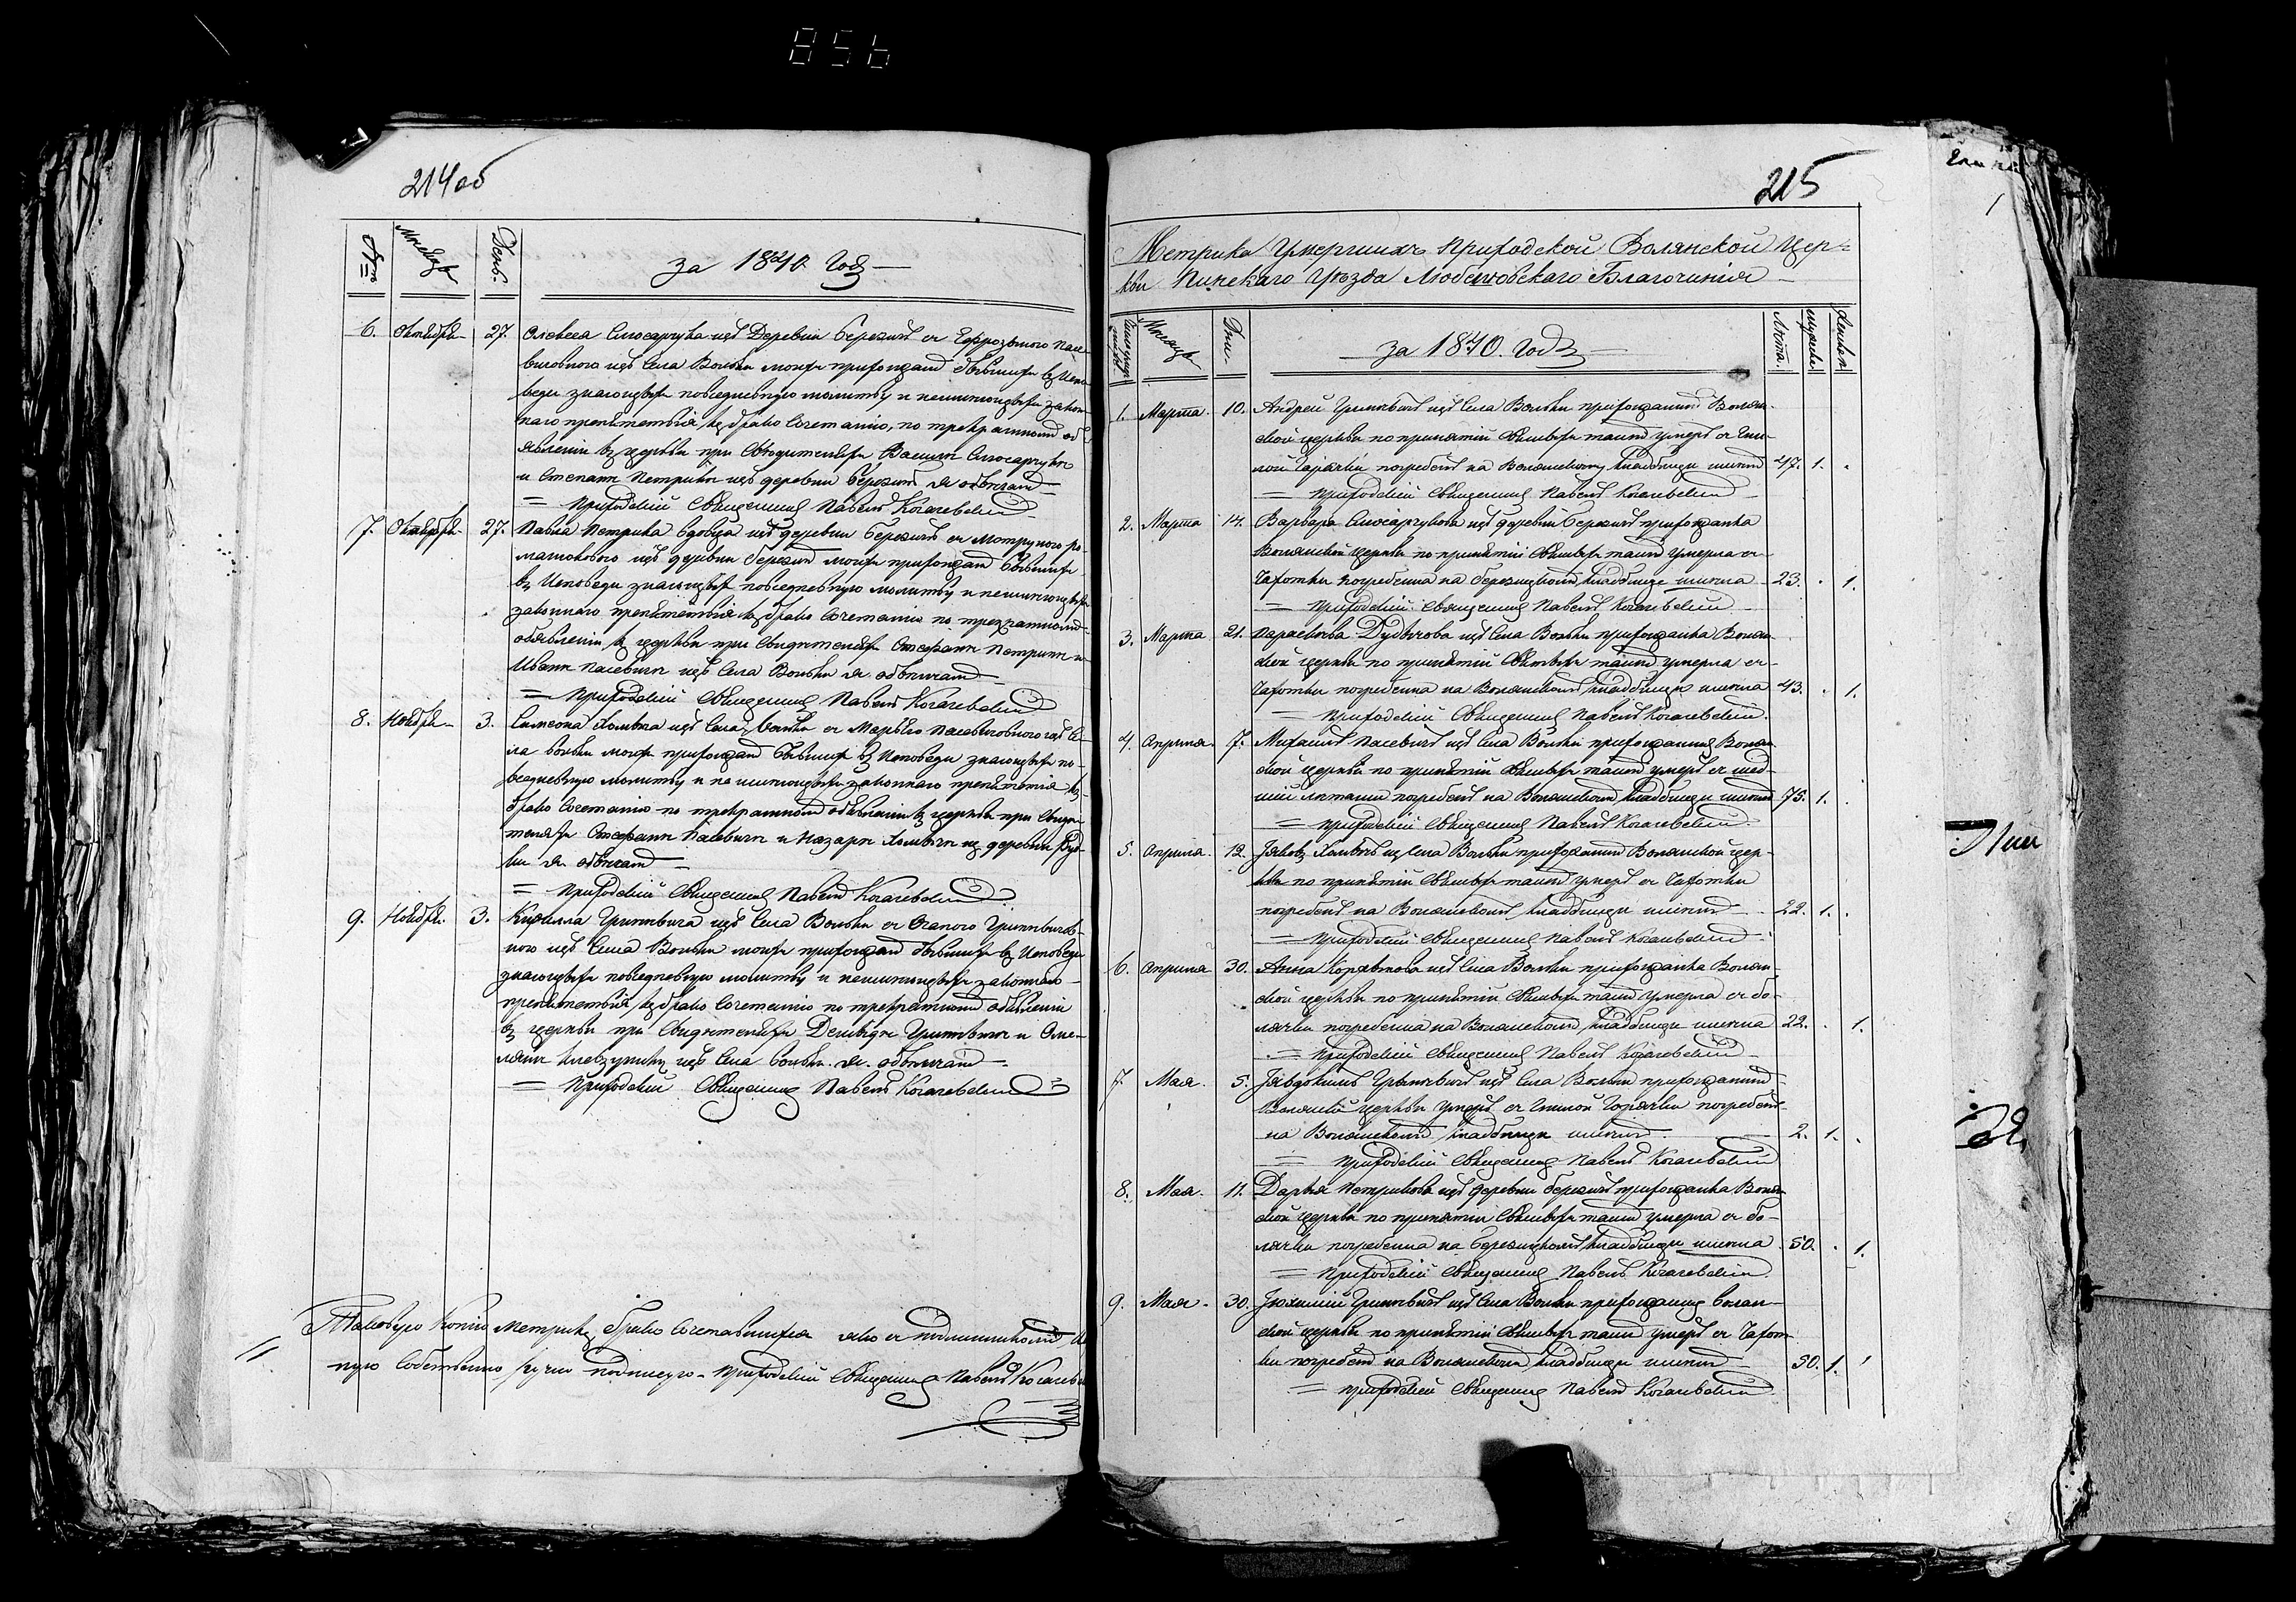 856
214об
№
Месяцъ
День.
за 1840. Годъ
6. Октября 27. Алексея Слюсарчука изъ Деревни Березичъ съ Евфрозыною Пасе-
вичовною изъ Села Вольки моихъ прихожанъ бывшихъ въ Испо-
веди знающихъ повседневную молитву и неимеющихъ закон-
наго препятствія къ браку сочетанію, по трехкратномъ об-
явленіи въ церкви при свидетеляхъ
и Степанъ Петрикъ изъ деревни Березичъ обвенчалъ
= Приходскій Священникъ Павелъ Когачевскій
7. Октября 27. Павла Петрика вдовца изъ деревни Березичъ съ Мотруною
изъ деревни Березичъ моихъ прихожанъ бывшихъ
въ Исповеди знающихъ повседневную молитву и неимеющихъ
законнаго препятствія къ браку сочетанію по трехкратномъ
обявленіи въ церкви при свидетеляхъ Стефанъ Петрикъ и
Иванъ Пасевичъ изъ Села Вольки обвенчалъ
= Приходскій Священникъ Павелъ Когачевскій
8. Ноября 3. Симеона Хомича изъ Села Вольки съ Марьею Пасевичовною изъ Се-
ла Вольки моихъ прихожанъ бывшихъ въ Исповеди знающихъ по-
вседневную молитву и не имеющихъ законнаго препятствія къ
браку сочетанію по трехкратномъ обявленіи въ церкви при свиде-
теляхъ Стефанъ Пасевичъ и Назаръ Хомичъ изъ деревни
обвенчалъ
= Приходскій Священникъ Павелъ Когачевскій
9. Ноября 3. Кирилла Гриневича изъ Села Вольки съ Агапою Гриневичов-
ною изъ Села Вольки моихъ прихожанъ бывшихъ въ Исповеди
знающихъ повседневную молитву и неимеющихъ законнаго
препятствія къ браку сочетанію по трехкратномъ обявленіи
въ церкви при свидетеляхъ Гриневичъ и Оме-
лянъ изъ Села Вольки обвенчалъ
= Приходскій Священникъ Павелъ Когачевскій
Таковую Копію Метрикъ Брако сочетавшихся яко съ подлинникомъ
ную собственно ручно подписую Приходскій Священникъ Павелъ Когачевс
215
Метрика Умершихъ Приходской Волянской Цер-
кви Пинскаго Уезда Любешовскаго Благочинія
Месяцъ
Дни.
за 1840. Годъ
Лета.
мужеска
женска
1. Марта. 10. Андрей Гриневичъ изъ Села Вольки прихожанинъ Волян-
ской церкви по принятіи святыхъ таинъ умеръ съ гни-
лой горячки погребенъ на Волянскомъ кладбище имелъ 47. 1.
= Приходскій Священникъ Павелъ Когачевскій
2. Марта 14. Варвара Слюсарчукова изъ деревни Березичъ прихожанка
Волянской церкви по принятіи святыхъ таинъ умерла съ
чахотки погребенна на Березицкомъ кладбище имела 23. 1.
= Приходскій Священникъ Павелъ Когачевскій
3. Марта 21. Параскева Дудичова изъ Села Вольки прихожанка Волян-
ской церкви по принятіи святыхъ таинъ умерла съ
чахотки погребенна на Волянскомъ кладбище имела 43. 1.
= Приходскій Священникъ Павелъ Когачевскій.
4. Апреля. 7. Михаилъ Пасевичъ изъ Села Вольки прихожанинъ Волян-
ской церкви по принятіи святыхъ таинъ умеръ съ
погребенъ на Волянскомъ кладбище имелъ 75. 1.
= Приходскій Священникъ Павелъ Когачевскій
5. Апреля. 12. Яковъ Хомичъ изъ Села Вольки прихожанинъ Волянской цер-
кви по принятіи святыхъ таинъ умеръ съ чахотки
погребенъ на Волянскомъ кладбище имелъ 22. 1.
= Приходскій Священникъ Павелъ Когачевскій
6. Апреля 30. Анна изъ Села Вольки прихожанка Волян-
ской церкви по принятіи святыхъ таинъ умерла съ бо-
лячки погребенна на Волянскомъ кладбище имела 22. 1.
= Приходскій Священникъ Павелъ Когачевскій
7. Мая. 5. Явдокимъ Гриневичъ изъ Села Вольки прихожанинъ
Волянской церкви умеръ съ гнилой горячки погребенъ
на Волянскомъ кладбище имелъ 2. 1.
= Приходскій Священникъ Павелъ Когачевскій
8. Мая. 11. Дарья Петрикова изъ деревни Березичъ прихожанка Волян-
ской церкви по принятіи святыхъ таинъ умерла съ бо-
лячки погребенна на Березицкомъ кладбище имела 50. 1.
= Приходскій Священникъ Павелъ Когачевскій.
9. Мая. 30. Гриневичъ изъ Села Вольки прихожанинъ Волян-
ской церкви по принятіи святыхъ таинъ умеръ съ чахот-
ки погребенъ на Волянскомъ кладбище имелъ 50. 1.
= Приходскій Священникъ Павелъ Когачевскій